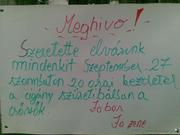 Meghívó!
Szeretette elvárunk
mindenkit Szeptember 27
szombaton 20 orai kezdetel
a cigány szüretibálban a
Jó bor
Jó zene